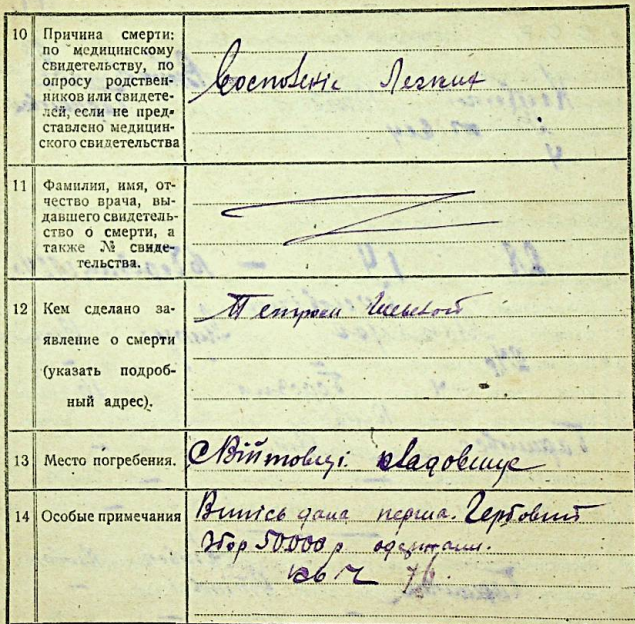 10 Причина смерти:
по медицинскому
свидетельству, по
опросу родствен-
ников или свидете-
лей, если не пред-
ставлено медицин-
ского свидетельства
Восполеніє Легких
11 Фамилия, имя, от-
чество врача, вы-
давшего свидетель-
ство о смерти, а
также № свиде-
тельства.
12 Кем сделано за-
явление о смерти
(указать подроб-
ный адрес).
13 Место погребения.
Війтовці кладовище
14 Особые примечания
Випісь дана перша. Гербовий
Збор 50.000 р одержали.